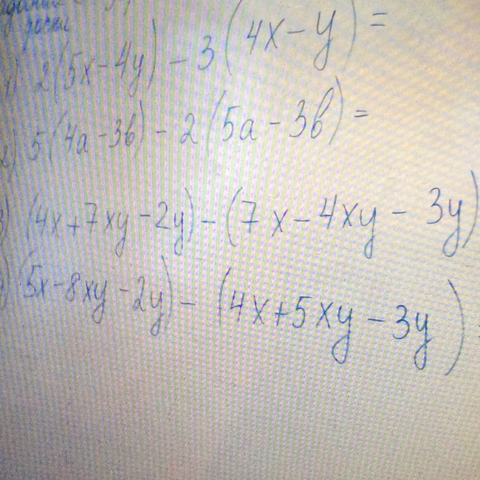 1) 2(5x-4y)-3(4x-y)=
2) 5(4a-3b)-2(5a-3b)=
3) (4x+7xy-2y)-(7x-4xy-3y)
(5x-8xy-2y)-(4x+5xy-3y)